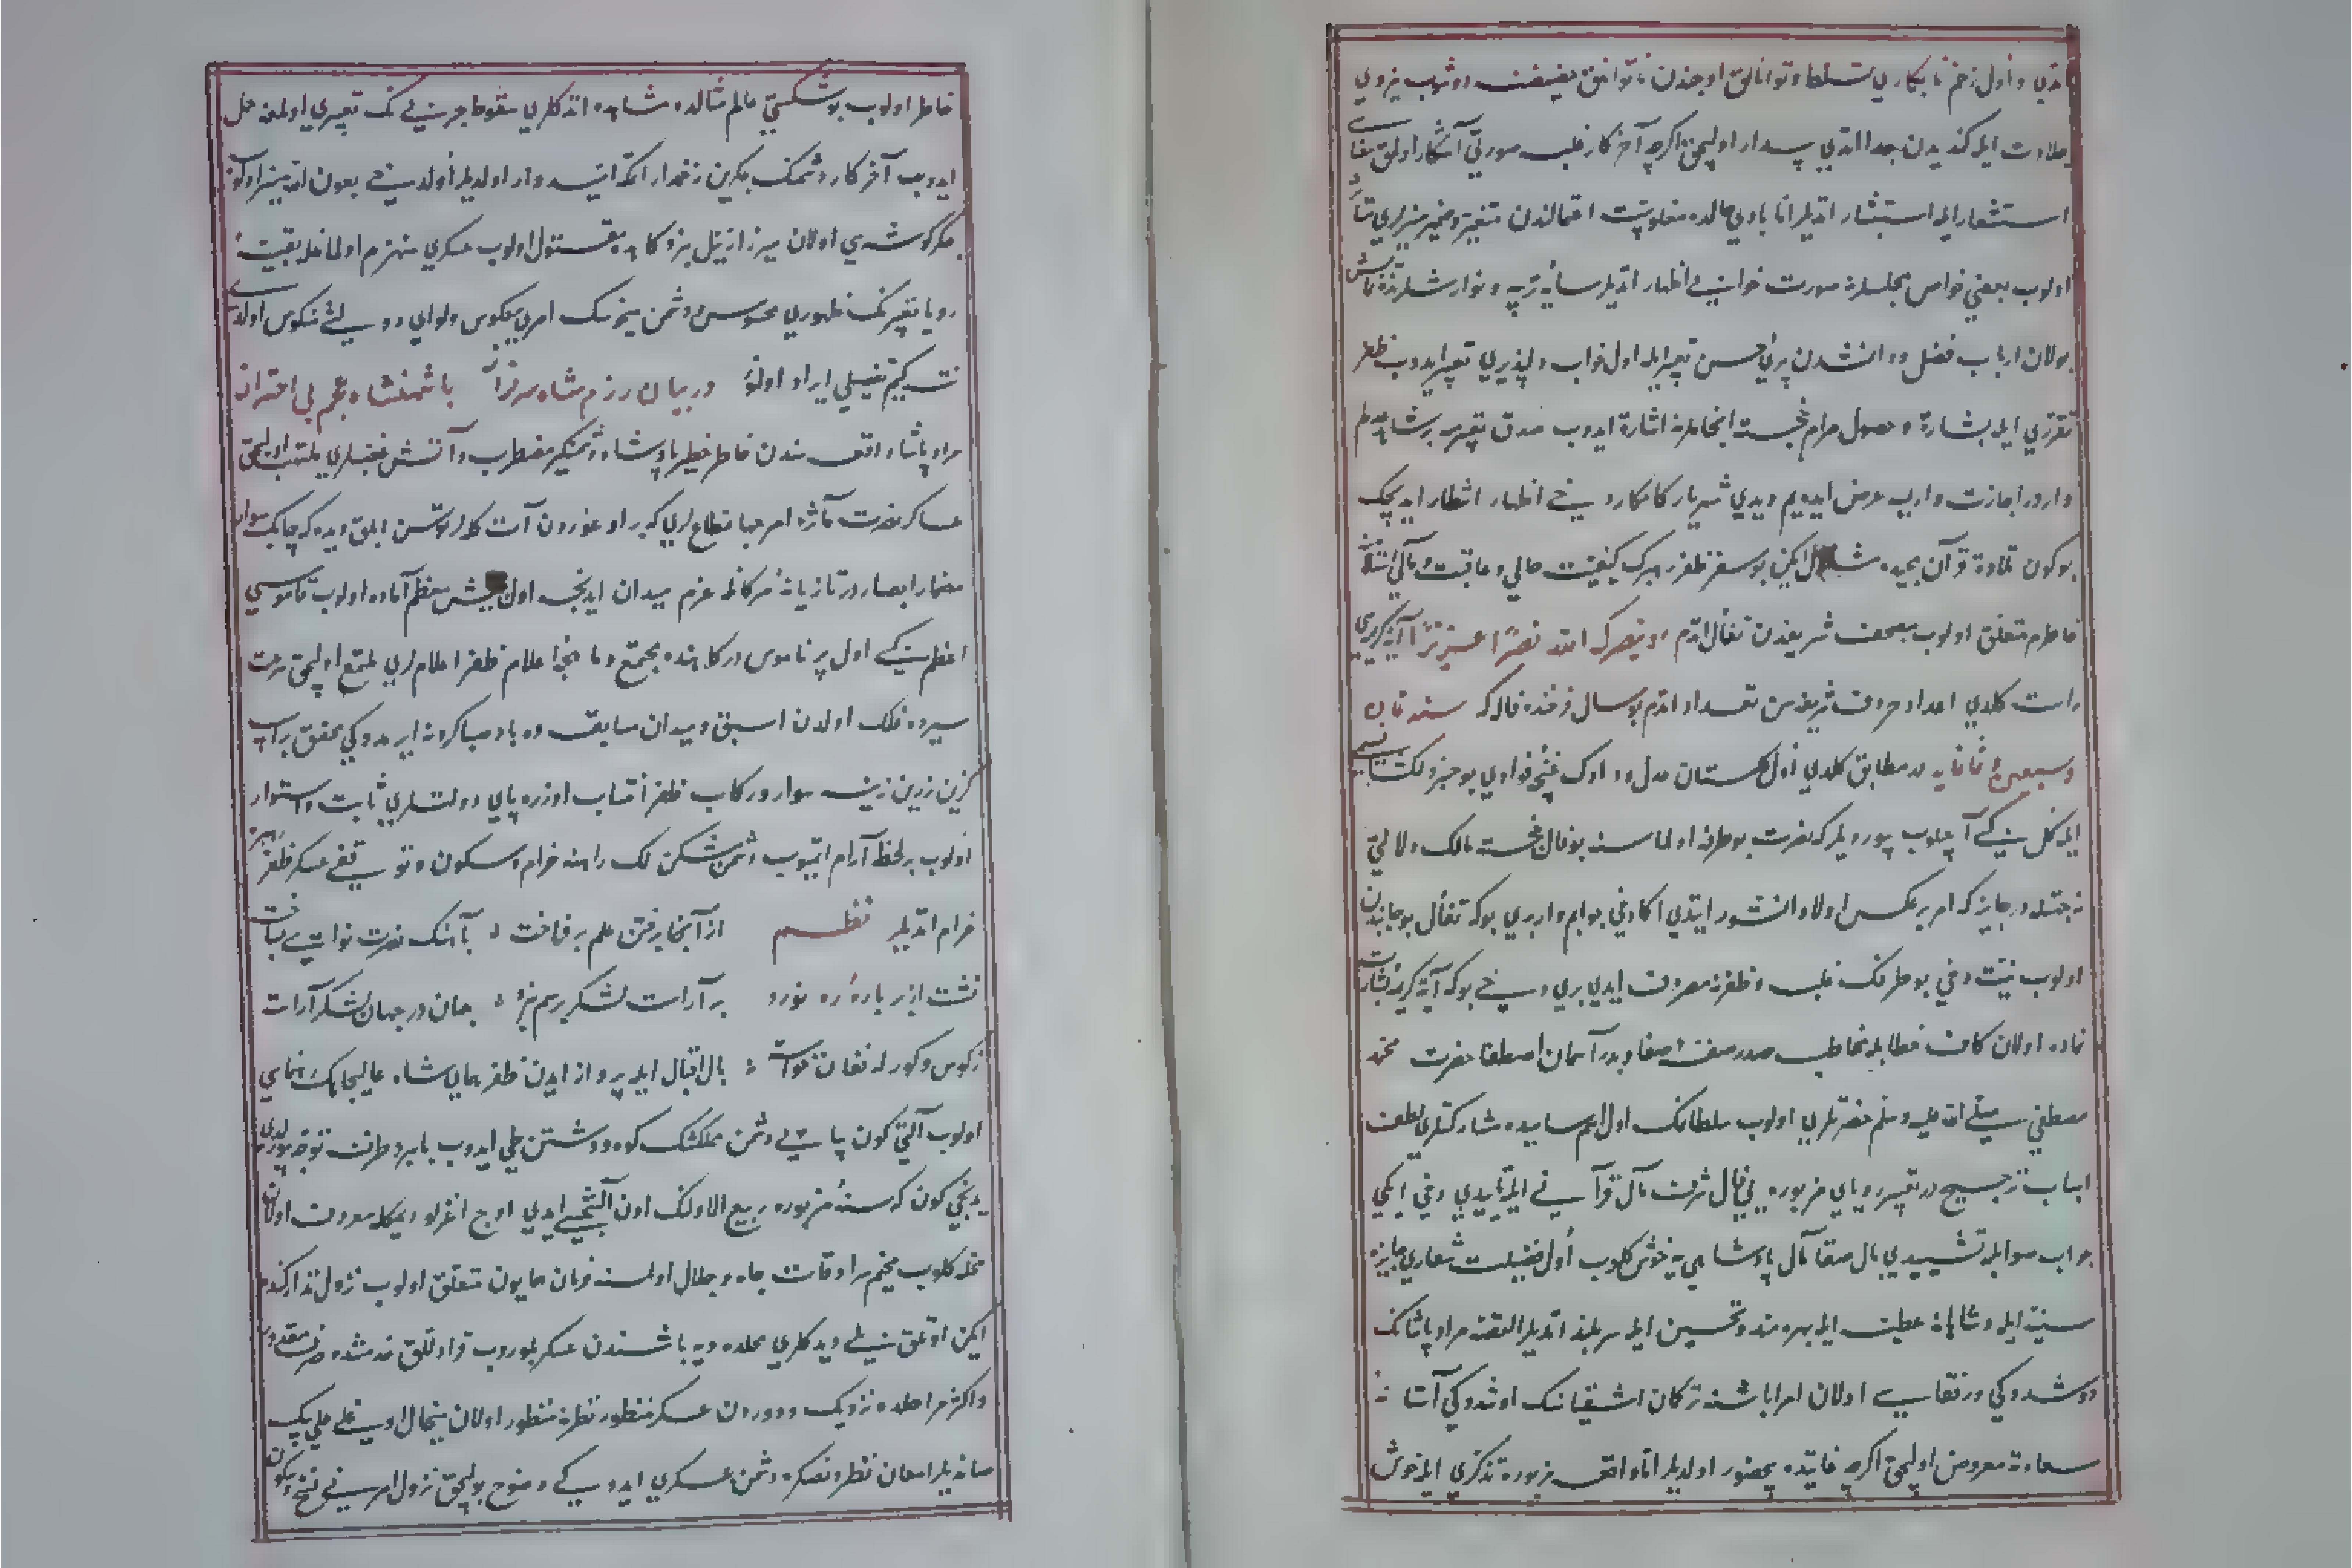 اندي و اول زخم نابكاري تسلط و توانالق اوجندن دوشوب يزوي
جلادت ايله كنديدن جدا اتدي پديدار اوليجق اكرچه آخر كار غلبه صورتي آشكار اولق
استشعار ايله استبشار اتديلر اما بادي حالده مغلوبيت احتمالندن متغير و ضمير منيرلري متأثر
اولوب بعضي خواص مجلسلرنه صورت خوابي اظهار اتديلر سايه تربيه و نوازشلرنده
بولان ارباب فضل و دانشدن بري حسن تعبير ايله اول خواب دلپذيري تعبير ايدوب ظفر
مقرري ايله بشارة و حصول مرام خجسته انجاملرنه اشارة ايدوب صدق تعبيرمه بر شاهدم
واردر اجازت واريب عرض ايده‌يم ديدي شهريار كامكار دخي اظهار انتظار ايديجك
بوكون تلاوة قرآن مجيده ايكن بو سفر ظفر رهبرك كيفيت حالي و عاقبت و مآلي
خاطرم متعلق اولوب مصحف شريفدن تفأل اتدم وينصرك الله نصرا عزيزا آيه كريمه‌سي
راست كلدي اعداد حروف شريفه‌سن تعداد اتدم بو سال فرخنده فاله كه سنه ثمان
و سبعين و ثمانمايه در مطابق كلدي اول گلستان عدل و دادك غنچه فوادي بو خبر
ايله كل كبي آچلوب بيورديلر كه نصرت بو طرفه اولماسنه بو فال خجسته مآلك دلالتي
نه جهتله در جايز كه امر بر عكس اولا دانشور ايتدي اكا دخي جوابم وار بري بو كه تفأل بو جانبدن
اولوب نيت دخي بو طرفك غلبه و ظفرنه مصروف ايدي بري دخي بو كه آيه كريمه بشارت
نماده اولان كاف خطابله مخاطب صدر صفه صفا و بدر آسمان اصطفا حضرت محمد
مصطفي صلي الله عليه وسلم حضرتلري اولوب سلطانمك اول اسم ساميده مشاركتلري لطف
اسباب ترجيح در تعبير روياي مزبوره يي فال شرف مآل قرآني ايله تاييدي دخي ايكي
جواب صوابله تشييدي بال صفا مآل پادشاهي يه خوش كلوب اول فضيلت شعاري جايزه
سنيه ايله و شاهانه عطيه ايله بهره‌مند و تحسين ايله سربلند اتديلر القصه مراد پاشانك
دوشدوكي و رفقاسي اولان امرا باشنه تركان اشقيانك اوشدوكي آستانه
سعادته معروض اوليجق اكرچه غايتده بيحضور اولديلر اما واقعه مزبوره تذكري ايله خوش
خاطر اولوب بو شكستي عالم مثالده مشاهده اتدكلري سقوط جزئينك تعبيري اولمغه حمل
ايدوب آخر كار دشمنك جكرين زخمدار اتمكه اميدوار اولديلر اولدخي بعون الله ميسر اولوب
جكركوشه‌سي اولان ميرزا زينل بزوكاهده مقتول اولوب عسكري منهزم اولمغله بقيه
رويا تعبيرنك ظهوري محسوس و دشمن منحوسك امري معكوس و لواي دولتي منكوس اولدي
نته كيم تفصيلي ايراد اولنور در بيان رزم شاه سرفراز با شهنشاه عجم بي احتراز
مراد پاشا واقعه‌سندن خاطر خطير پادشاه دشمنكير مضطرب و آتش غضبلري ملتهب اوليجق
عساكر نصرت مآثره امر جهانمطاعلري كه براوغوردن آت كلر توسن ابلق ديده كه چابك سوار
مضمار ابصار در تازيانه مژكانله عزم ميدان ايدنجه اول جيش معظم آماده اولوب ناموسي
اعظم كبي اول پر ناموس دركاهنده مجتمع و ماهچه اعلام ظفر اعلاملري ملتمع اوليجق سرعت
سيرده فلك اولدن اسبق و ميدان مسابقه‌ده باد صبا كردنه ايرمدوكي محقق براسب
كزين زرين زينه سوار و ركاب ظفر انتساب اوزره پاي دولتلري ثابت و استوار
اولوب بر لحظه آرام اتميوب دشمن شكنلك راهنه خرام و سكون و توقفي عسكر ظفر رهبره
حرام اتديلر نظم از آنجا برفتن علم برفراخت بآهنك نصرت نوايي بساخت
نشست از بر باره ره نورد برآراست لشكر برسم نبرد جهان در جهان لشكر آراست
ز كوس و كوركه فغان خواست بال اقبال ايله پرواز ايدن ظفر هماي شاه عاليجاهك رهنماسي
اولوب آلتي كون پياپي دشمن مملكتنك كوه و دشتن طي ايدوب بايبرد طرفنه توجه بيورلدي
يدنجي كون كه سنه مزبوره ربيع الاولنك اون آلتنجيسي ايدي اوچ اغزلو ديمكله معروف اولان
محله كلوب مخيم سرادقات جاه و جلال اولمسنه فرمان همايون متعلق اولوب نزول تداركنده
ايكن اوتلق بيلي ديدكلري محلده ديه باشندن عسكر بلوروب قراولق خدمتنده صرف مقدور
و اكثر مراحلده نزديك و دوردن عسكر منظور نظرنه منظور اولان ميخال اوغلي علي بك
صانديلر امعان نظر دنصكره دشمن عسكري ايدوكي وضوح بوليجق نزول امريني فسخ و سكون